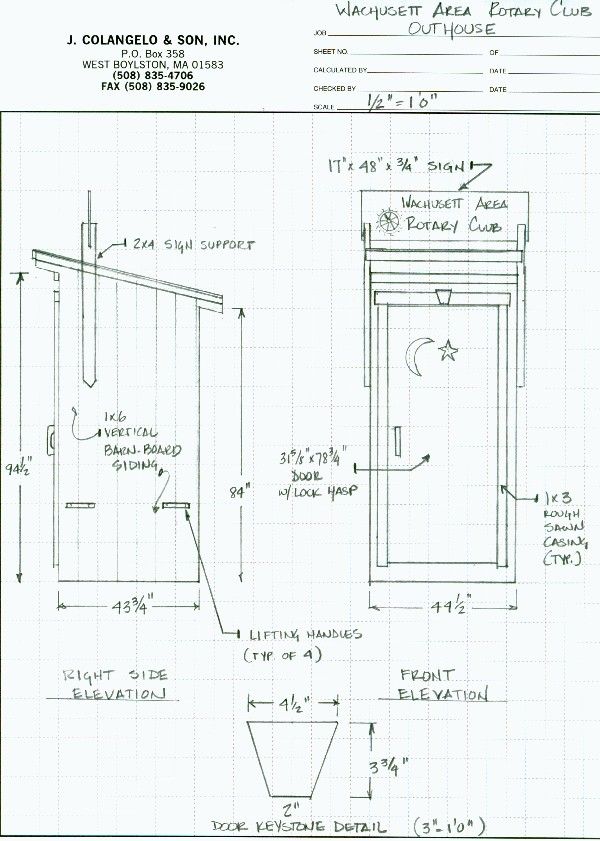 J. COLANGELO & SON, INC.
P.O. Box 358
WEST BOYLSTON, MA 01583
(508) 835-4706
FAX (508) 835-9026
WACHUSETT AREA ROTARY CLUB
JOB OUTHOUSE
SHEET NO. OF
CALCULATED BY DATE
CHECKED BY DATE
SCALE 1/2" = 1'0"
17" x 48" x 3/4" SIGN
WACHUSETT AREA
ROTARY CLUB
2x4 SIGN SUPPORT
1x6
VERTICAL
BARN-BOARD
SIDING
94 1/2"
84"
31 5/8" x 78 3/4"
DOOR
W/ LOCK HASP
1x3
ROUGH
SAWN
CASING
(TYP.)
43 3/4"
44 1/2"
LIFTING HANDLES
(TYP. OF 4)
RIGHT SIDE
ELEVATION
FRONT
ELEVATION
4 1/2"
3 3/4"
2"
DOOR KEYSTONE DETAIL (3"-1'0")